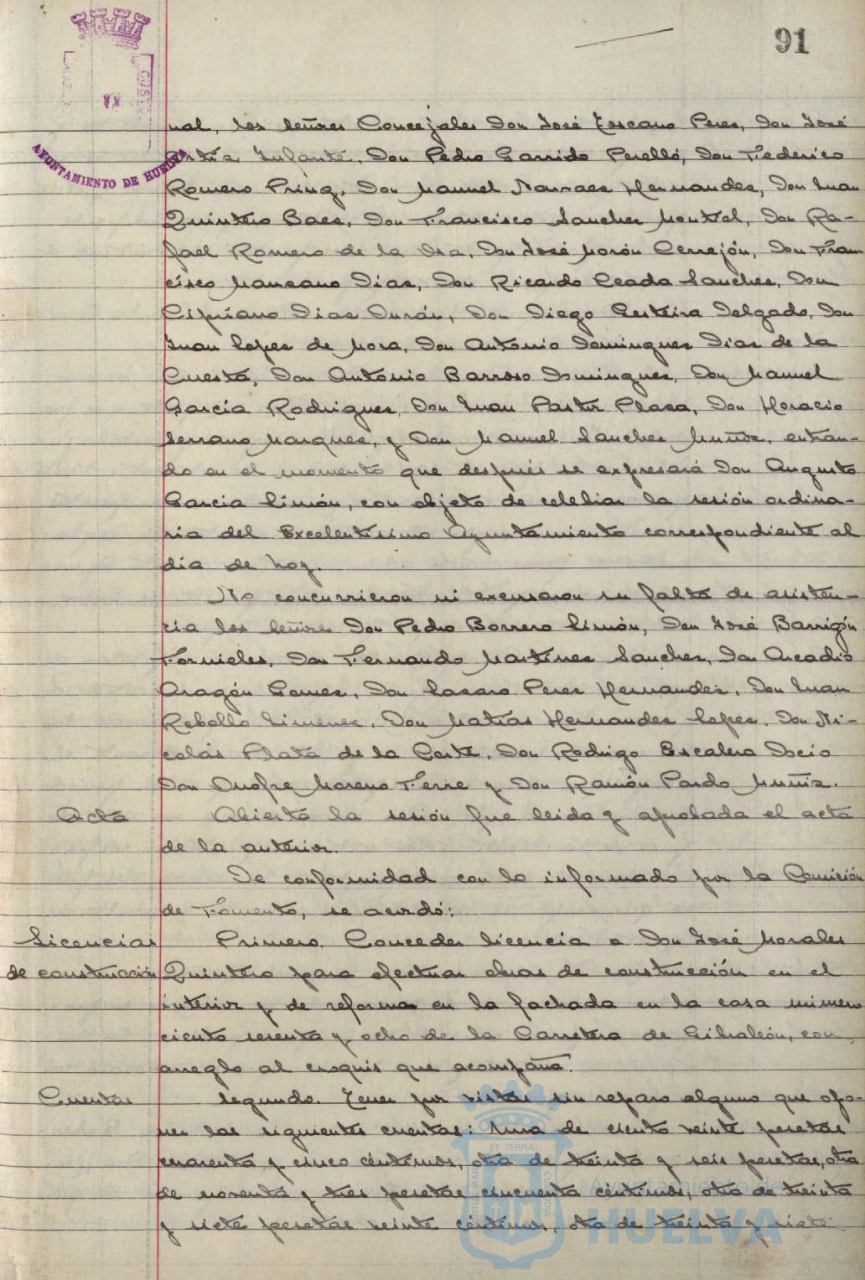 91
AYUNTAMIENTO DE HUELVA
nal, los señores Concejales Don José Toscano Peres, Don José
Ortiz Infante, Don Pedro Garrido Perelló, Don Federico
Romero Prinz, Don Manuel Narvaes Hernandes, Don Juan
Quintero Baes, Don Francisco Sanches Montiel, Don Ra-
fael Romero de la Osa, Don José Morón Cerrejón, Don Fran-
cisco Manzano Dias, Don Ricardo Ceada Sanches, Don
Cipriano Dias Durán, Don Diego Gesteira Delgado, Don
Juan Lopes de Mora, Don Antonio Domingues Dias de la
Cuesta, Don Antonio Barroso Domingues, Don Manuel
García Rodrigues, Don Juan Pastor Plasa, Don Horacio
Serrano Marques, y Don Manuel Sanches Muñoz, entran-
do en el momento que después se expresará Don Augusto
García Limón, con objeto de celebrar la sesión ordina-
ria del Excelentísimo Ayuntamiento correspondiente al
día de hoy.
No concurrieron ni excusaron su falta de asisten-
cia los señores Don Pedro Borrero Limón, Don José Barrigón
Fornieles, Don Fernando Martines Sanches, Don Arcadio
Aragón Gomes, Don Lasaro Peres Hernandes, Don Juan
Rebollo Jimenes, Don Matías Hernandes Lopes, Don Ni-
colás Plata de la Corte, Don Rodrigo Escalera Docio
Don Onofre Moreno Ferre y Don Ramón Pardo Muñiz.
Acta Abierta la sesión fue leida y aprobada el acta
de la anterior.
De conformidad con lo informado por la Comisión
de Fomento, se acordó:
Licencias Primero. Conceder licencia a Don José Morales
de construcción Quintero para efectuar obras de construcción en el
interior y de reforma en la fachada en la casa número
ciento sesenta y ocho de la Carretera de Gibraleón, con
arreglo al croquis que acompaña.
Cuentas Segundo. Tener por vistas sin reparo alguno que opo-
ner las siguientes cuentas: Una de ciento veinte pesetas
cuarenta y cinco céntimos, otra de treinta y seis pesetas, otra
de noventa y tres pesetas cincuenta céntimos, otra de treinta
y siete pesetas veinte céntimos, otra de treinta y siete
Ayuntamiento de
HUELVA